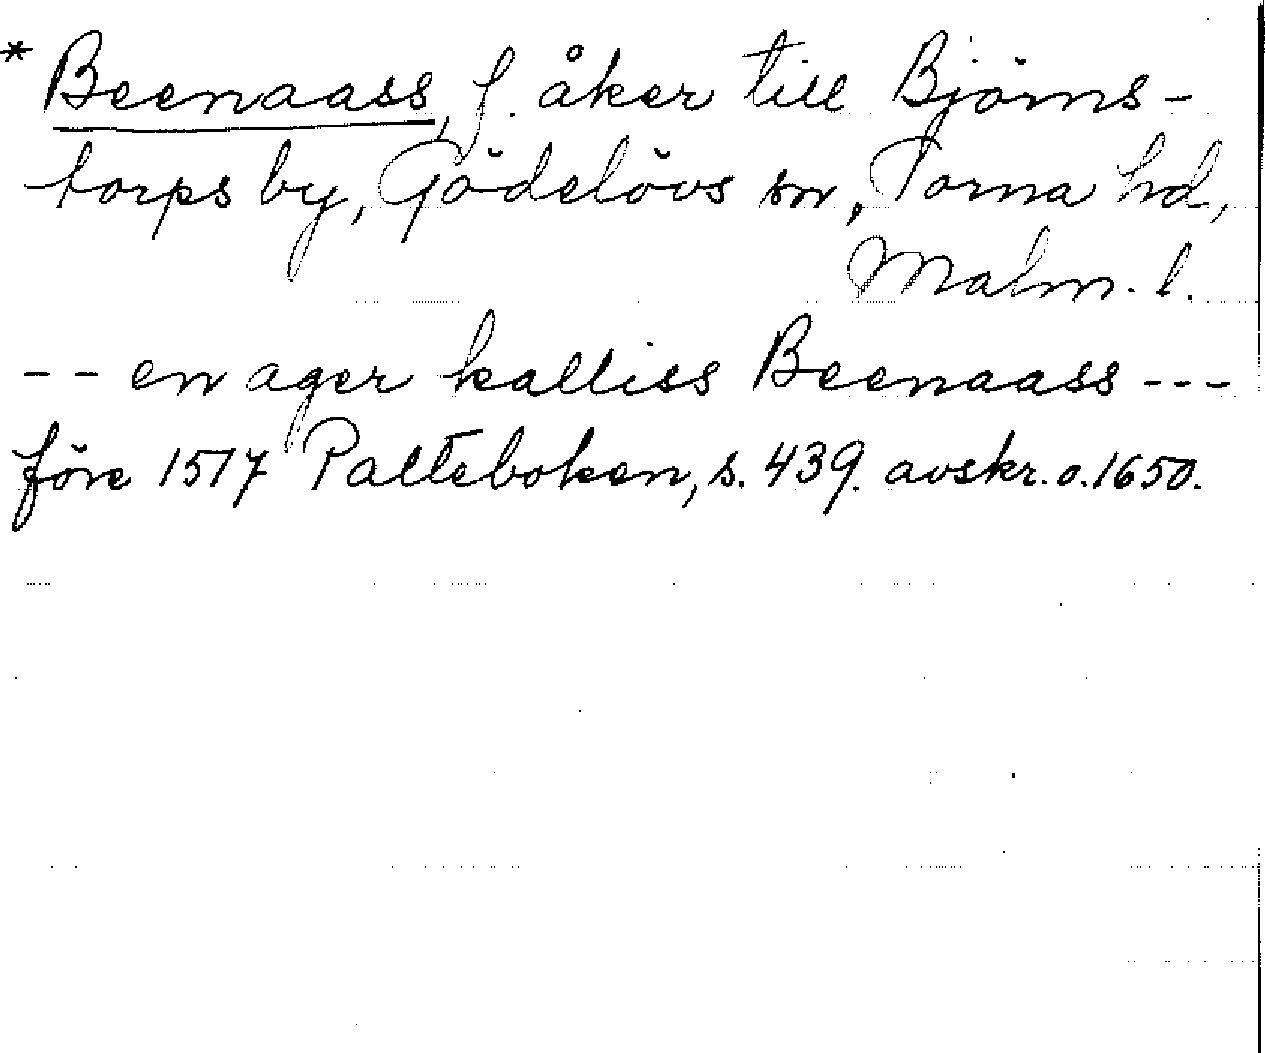 * Beenaass, f. åker till Björns-
torps by, Gödelövs sn, Torna hd,
Malm. l.
-- en ager kalliss Beenaass ---
före 1517 Palteboken, s. 439. avskr. o. 1650.